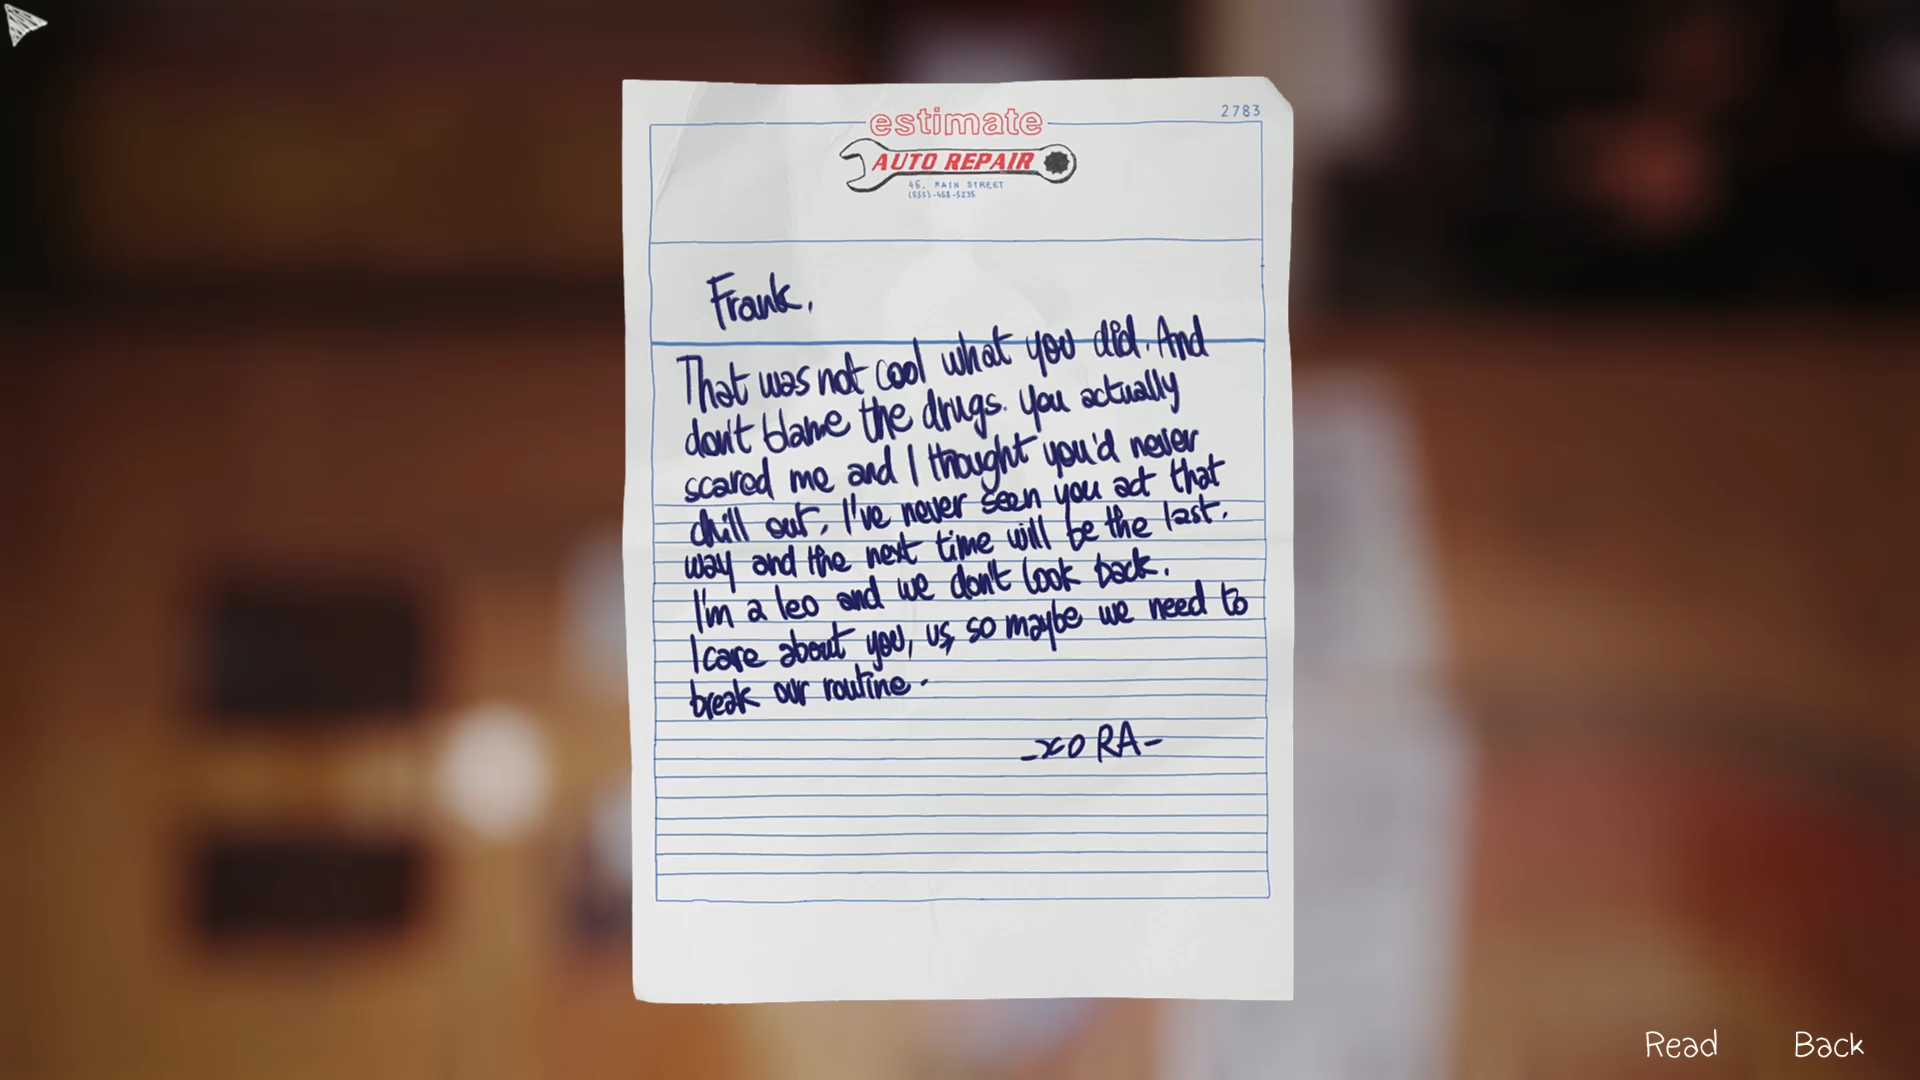 2783
estimate
AUTO REPAIR
45, MAIN STREET
(555)-468-5235
Frank,
That was not cool what you did. And
don't blame the drugs. You actually
scared me and I thought you'd never
chill out. I've never seen you act that
way and the next time will be the last.
I'm a leo and we don't look back.
I care about you, us, so maybe we need to
break our routine.
-xo RA-
Read Back